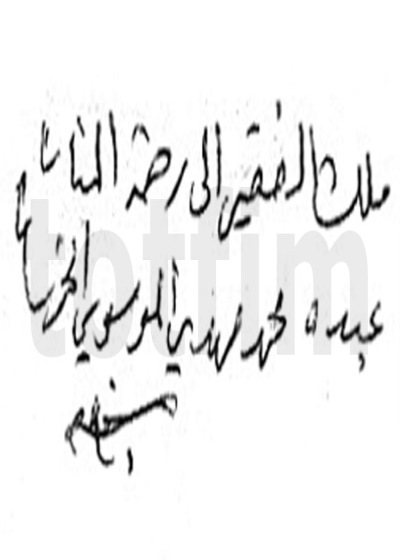 ملك الفقير الى رحمة المنان
عبده محمد مهدي الموسوي الخرسان
totfim